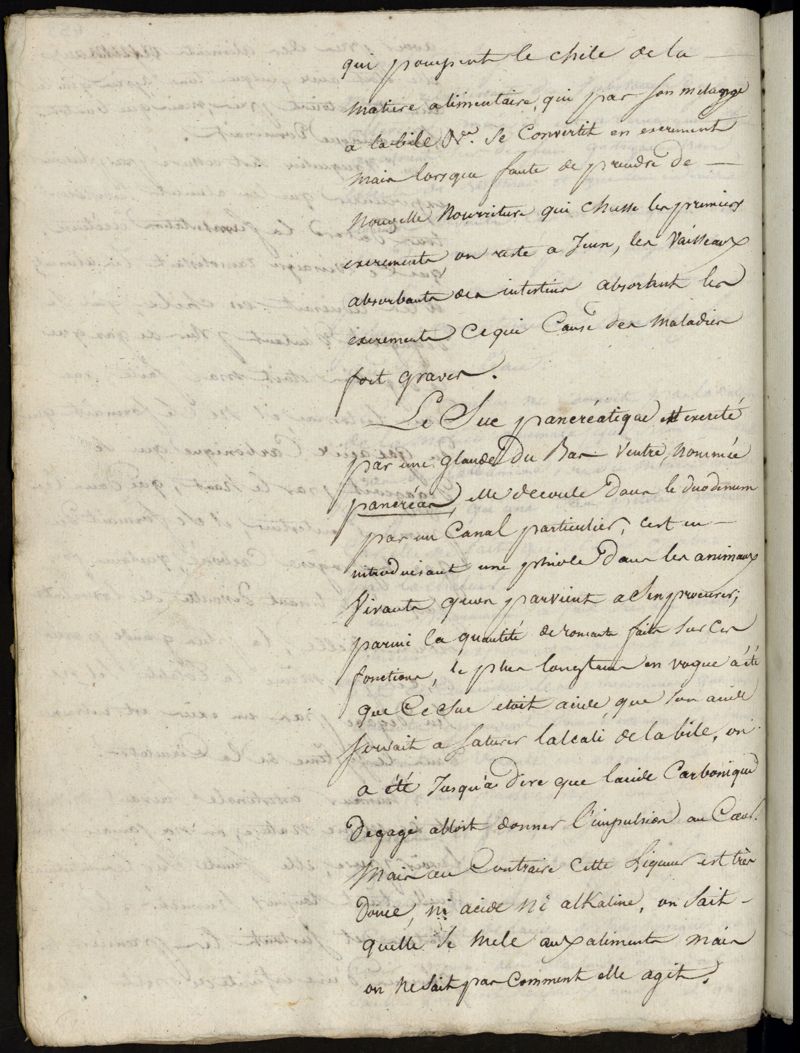 qui pompent le chile de la —
matiere alimentaire, qui par son melange
a la bile &ra. se Convertit en excrement
mais lorsque faute de prendre de —
nouvelle nourriture qui chasse les premiers
excrements on reste a Jeun, les Vaisseaux
absorbants des intestins absorbent les
excrements Ce qui Cause des maladies
fort graves.
Le Suc pancréatique est excreté
par une glande du Bas Ventre, nommée
pancréas, elle decoule dans le duodenum
par un Canal particulier, c'est en —
introduisant une phiole dans les animaux
Vivants qu'on parvient a S'en procurer;
parmi la quantité de romants faits sur ces
fonctions, le plus longtems en vogue a été
que Ce Suc etoit acide que son acide
servait a saturer l'alcali de la bile, on
a été Jusqu'à dire que l'acide Carbonique
degagé alloit donner l'impulsion au Cœur.
Mais au Contraire cette Liqueur est très
douce, ni acide ni alkaline, on sait -
quelle se mele aux aliments mais
on ne sait pas Comment elle agit.